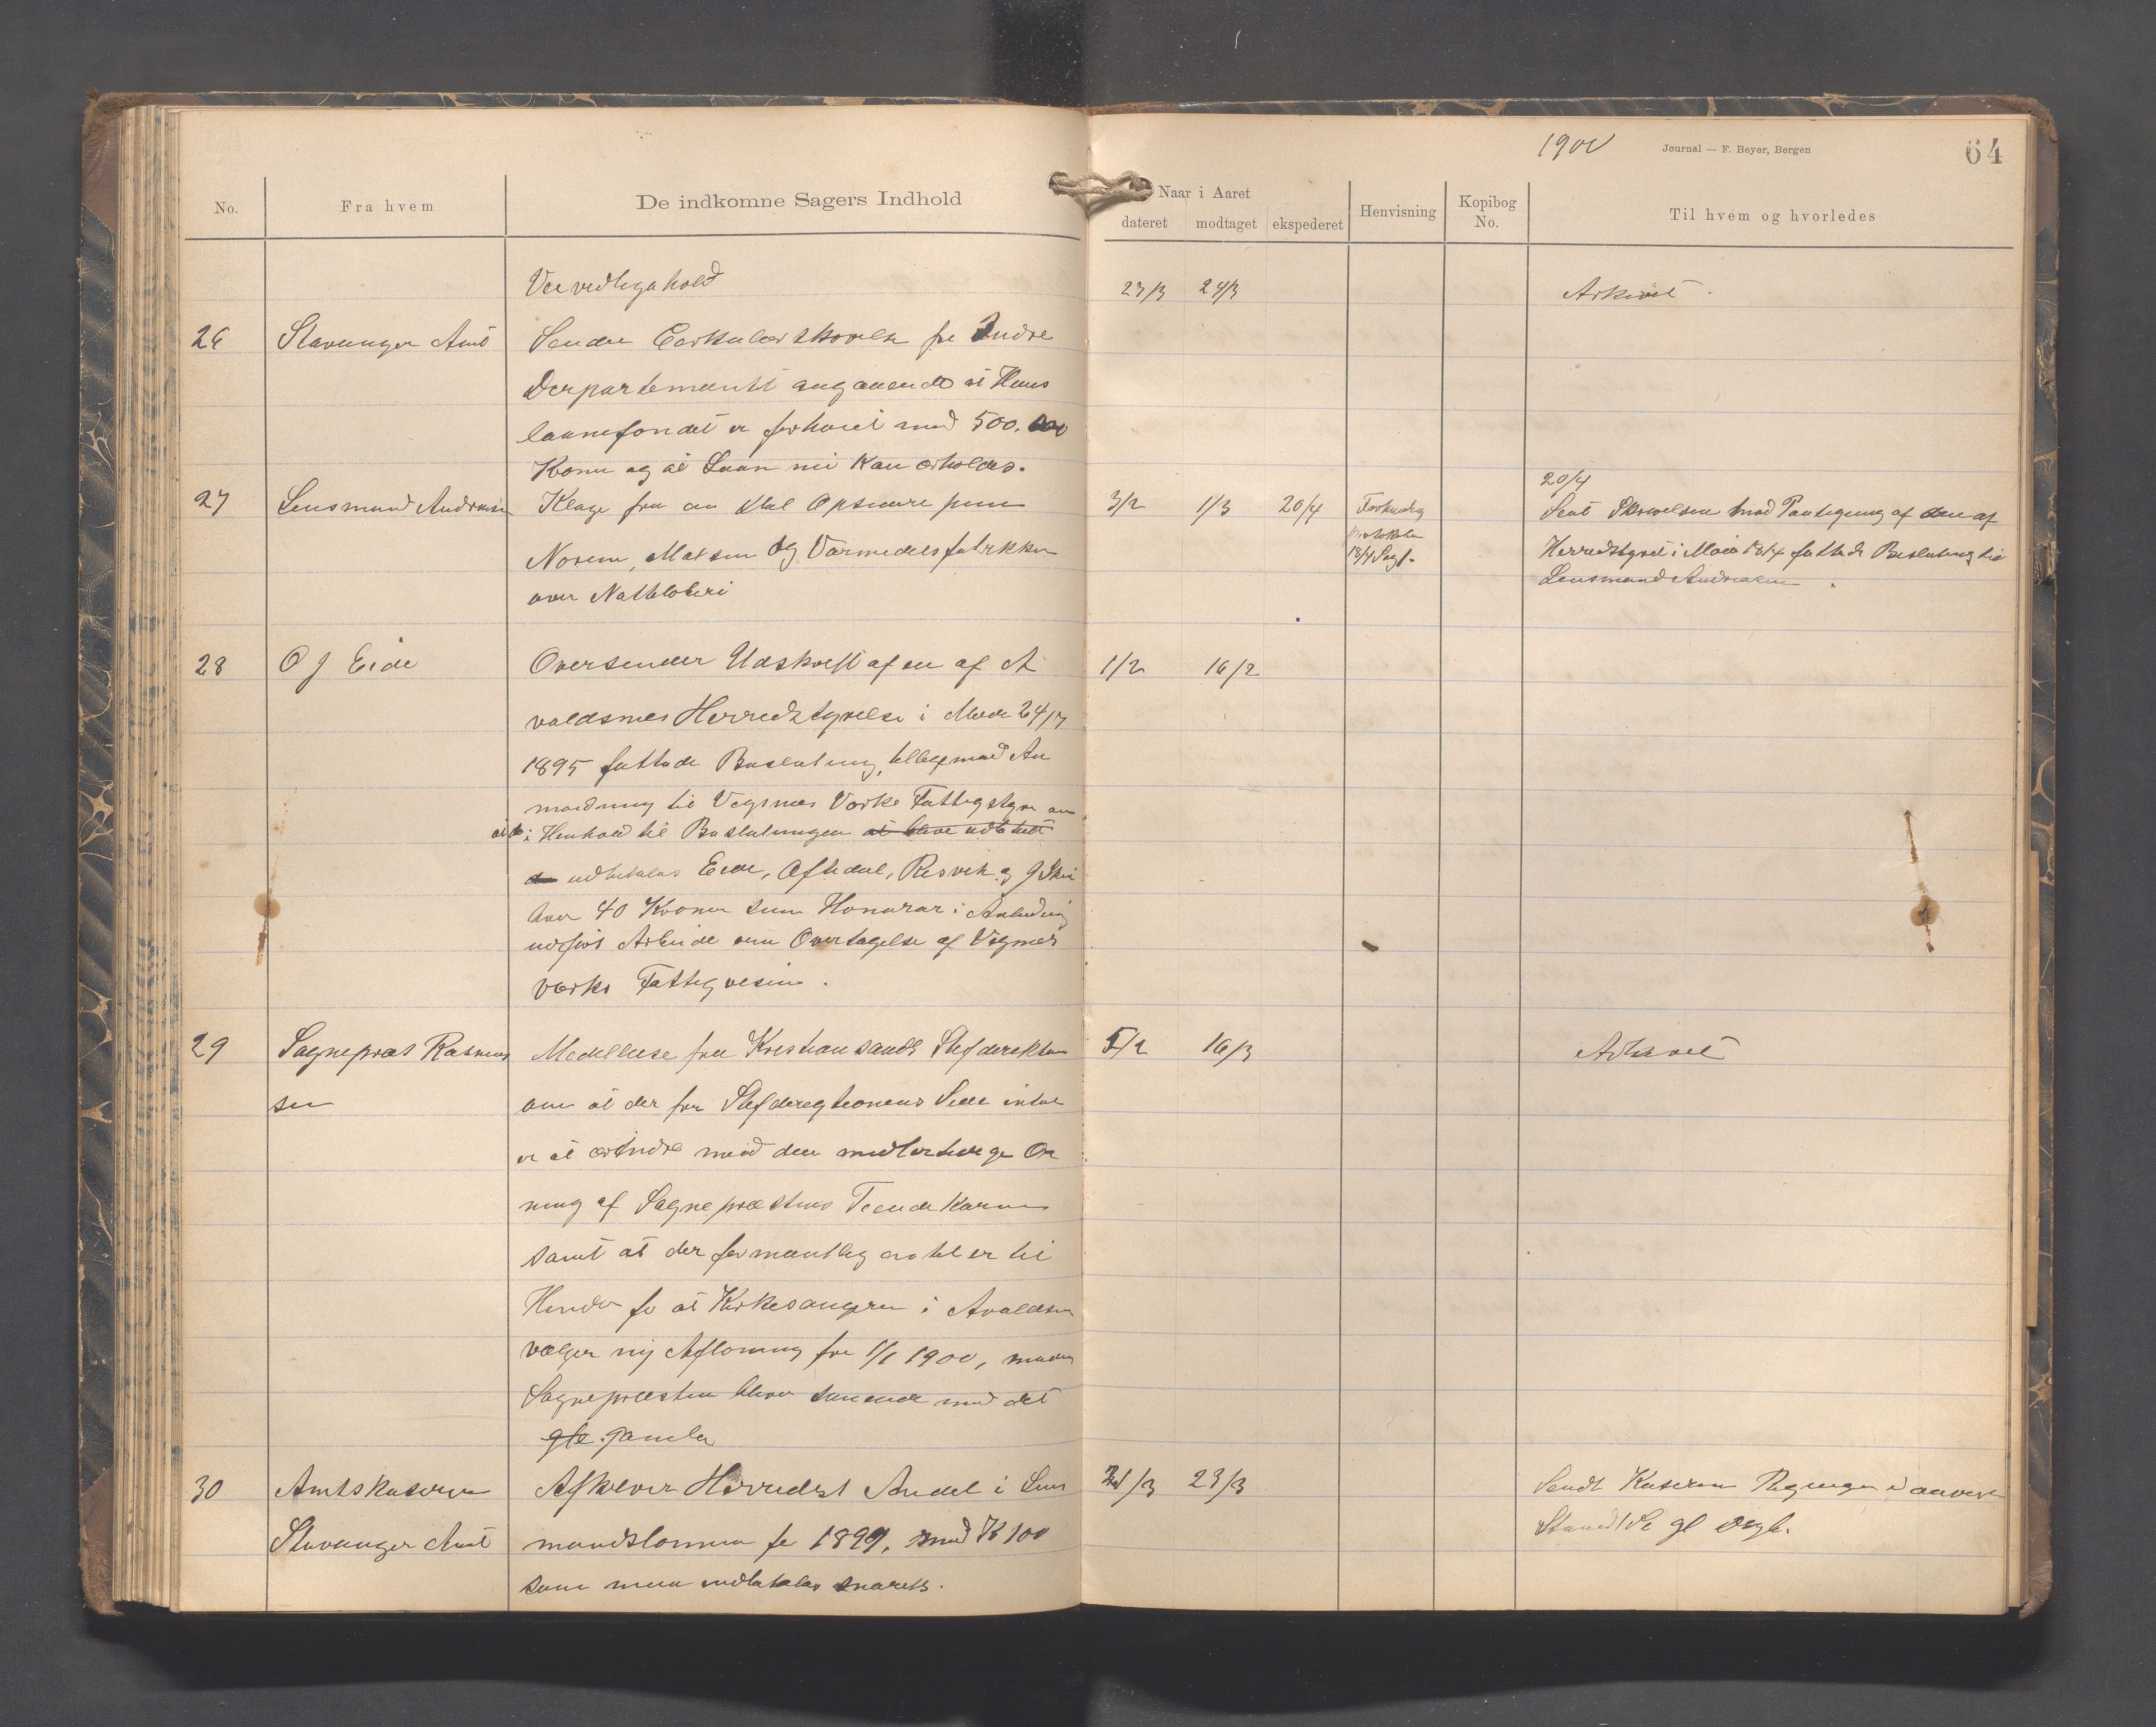 1900
Journal — F. Beyer, Bergen
64
No.
Fra hvem
De indkomne Sagers Indhold
Naar i Aaret
dateret
modtaget
ekspederet
Henvisning
Kopibog No.
Til hvem og hvorledes
Veivedligehold
23/3 24/3
Arkivet.
26 Stavanger Amt
Sender Cirkulærskrivelse fra Indre
Departementet angaaende at Huus
laanefondet er forhøiet med 500.000
Kroner og at Laan nu kan erholdes.
27 Lensmand Andreasen
Klage fra en del Opsiddere paa
Norem, Matsen og Varmedelsfabrikken
over Natteloberi
3/2 1/3 20/4
Forhandlg
protokollen
18/4 Sag 1.
20/4
Sent Skrivelsen med Paategning af den af
Herredstyret i Møde 18/4 fattede Beslutning til
Lensmand Andreasen.
28 O J Eide
Oversender Udskrift af en af A
valdsnes Herredstyrelse i Møde 24/7
1895 fattede Beslutning, tilligemed An
modning til Vigsnes Værks Fattigstyre om
at i Henhold til Beslutningen at blive udbetalt
udbetales Eide, Oftedal, Risvik og J Skei
hver 40 Kroner som Honorar i Anledning
udført Arbeide om Overtagelse af Vigsnes
værks Fattigvesen.
1/2 16/2
29 Sognepræst Rasmus
sen
Meddelelse fra Kristiansands Stiftsdirektion
om at der fra Stiftsdirektionens Side intet
er at erindre mod den midlertidige Ord
ning af Sognepræstens Tiendekorn
samt at der formentlig intet er til
Hinder for at Kirkesangeren i Avaldsnes
vælger ny Aflønning fra 1/1 1900, medens
Sognepræsten bliver staaende med det
gle gamle
5/2 16/3
Arkivet
30 Amtskasserer
Stavanger Amt
Afkræver Herredets Andel i Lens
mandslønnen for 1899, med K 100
som maa indbetales snarest.
21/3 23/3
Sendt Kassereren Regningen i anvist
Stand